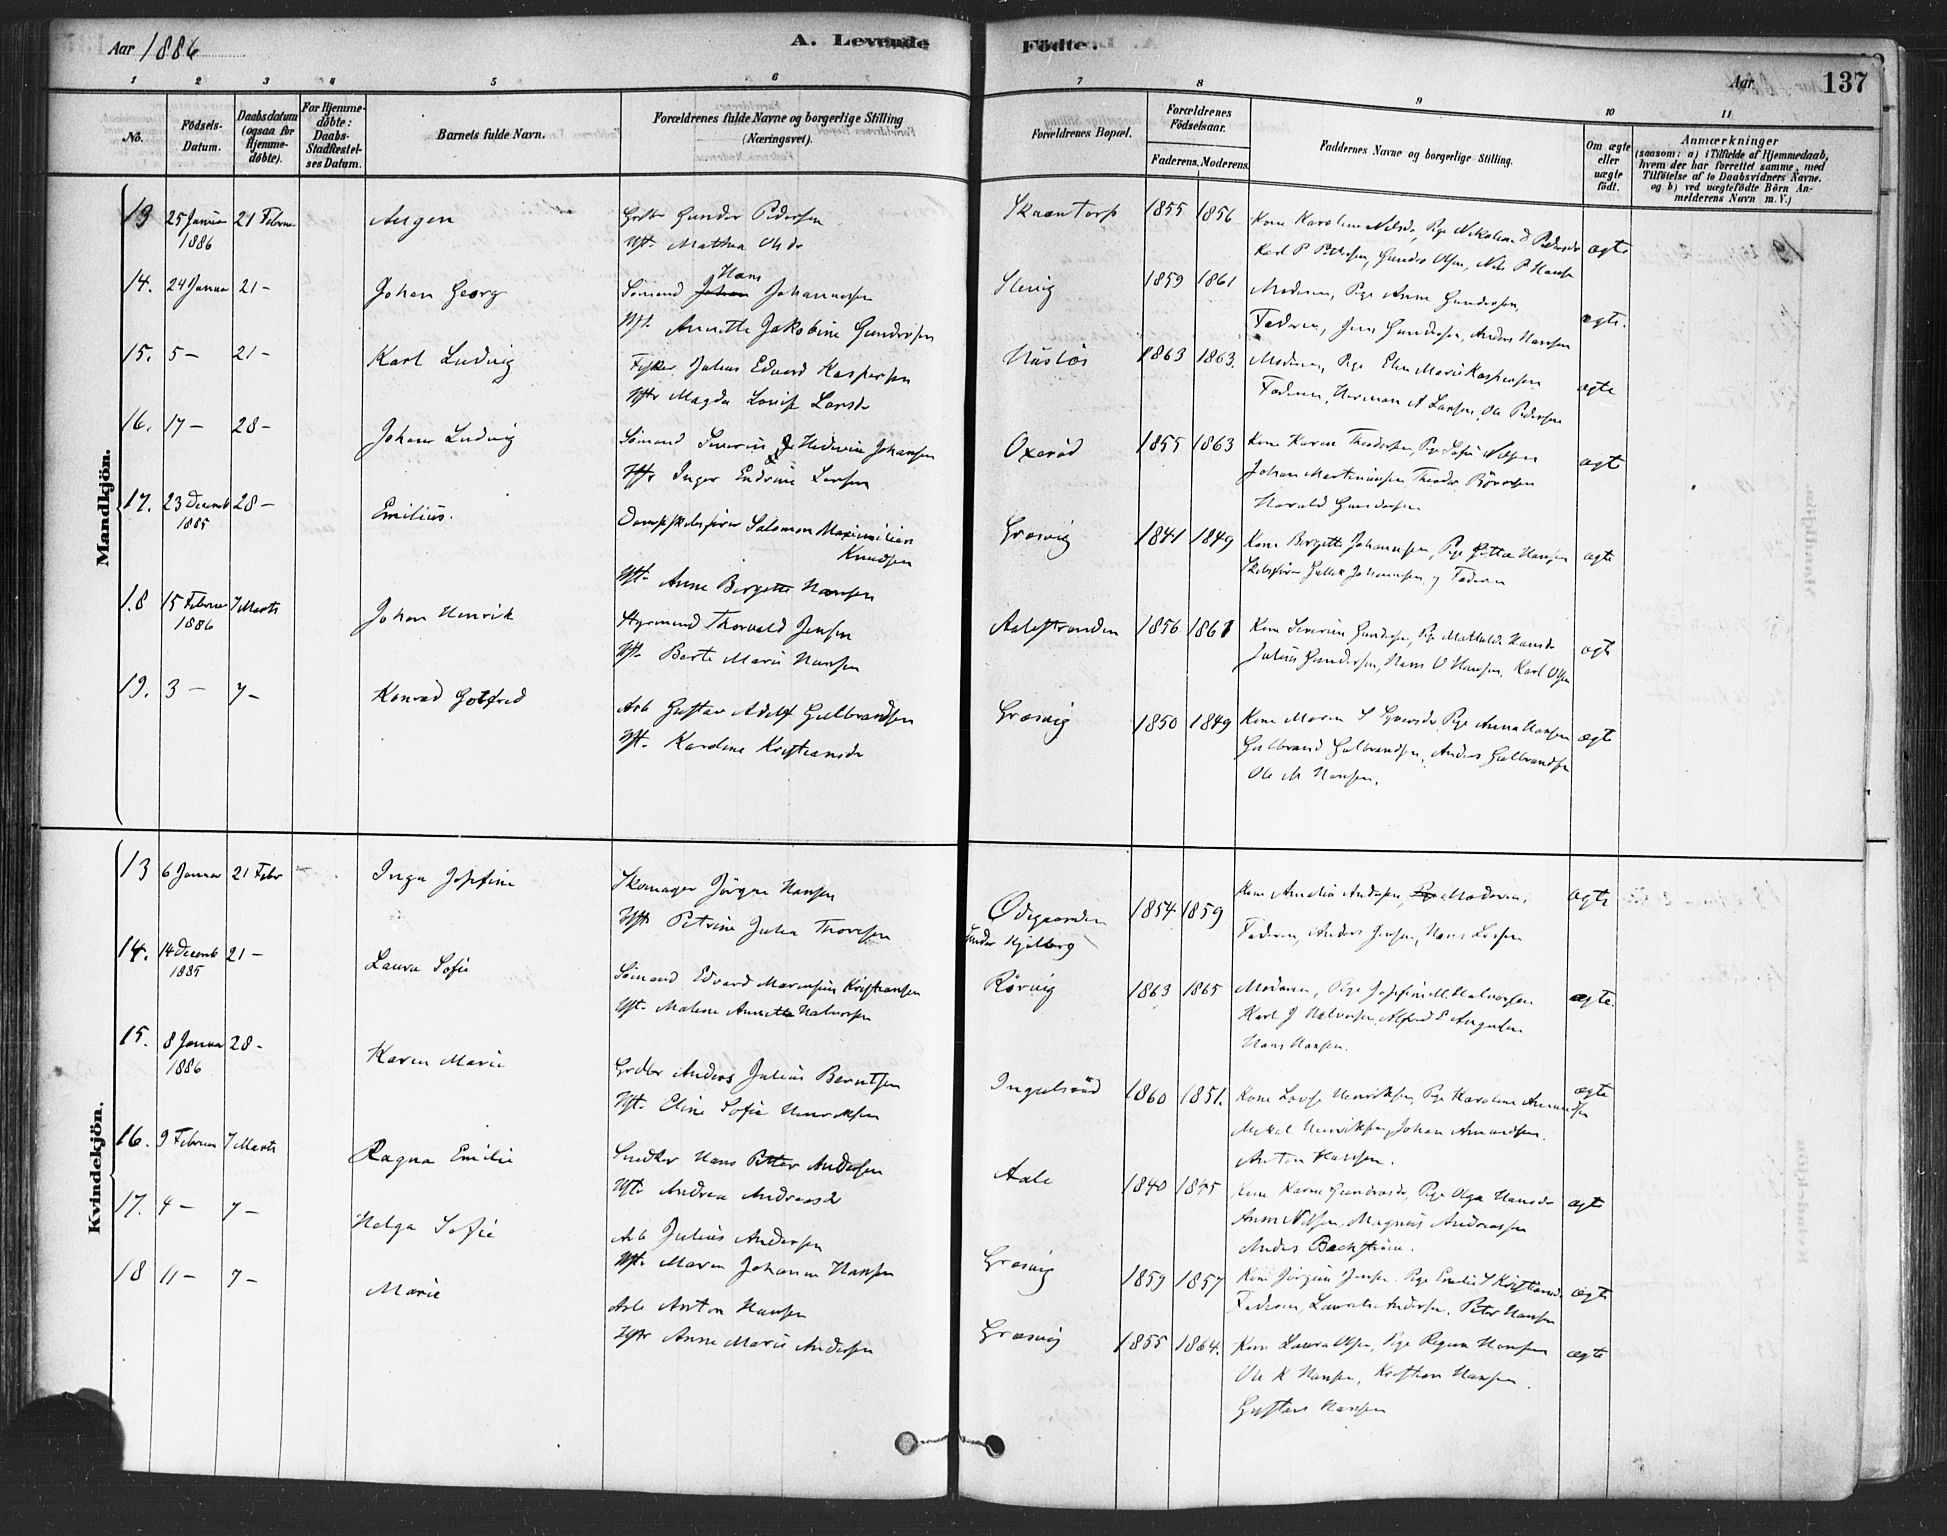 Aar 1886
A. Levende Fødte.
Aar
137
1 2 3 4 5 6 7 8 9 10 11
No.
Fødsels-Datum.
Daabsdatum (ogsaa for Hjemme-døbte).
For Hjemme-døbte: Daabs-Stadfæstel-ses Datum.
Barnets fulde Navn.
Forældrenes fulde Navne og borgerlige Stilling (Næringsvei).
Forældrenes Bopæl.
Forældrenes Fødselsaar.
Faderens. Moderens.
Faddernes Navne og borgerlige Stilling.
Om ægte eller uægte født.
Anmærkninger
(saasom: a) i Tilfælde af Hjemmedaab,
hvem der har forrettet samme, med
Tilføielse af to Daabsvidners Navne.
og b) ved uægtefødte Børn An-
melderens Navn m. V.)
Mandkjön.
13 25 Januar 1886 21 Februar
Gunder Pedersen
Hst. Mathea
1855 1856
Kone Karoline Nilsd, Pige Nikoline Pedersd
Karl P Pettersen, Gunder Olsen, Nils P Hansen
ægte
14. 24 Januar 21 –
Johan Georg
Sömand Hans Johannesen
Hst. Annette Jakobine Gundersen
1859 1861
Moderen, Pige Anne Gundersen,
Faderen, Jens Gundersen, Anders Hansen
ægte.
15. 5 – 21 –
Karl Ludvig
Fisker Julius Edvard Kaspersen
Hstr Magda Lovise Larsd
1863 1863.
Moderen, Pige Elen Marie Kaspersen
Faderen, Herman A Larsen, Ole Pedersen
ægte
16. 17 – 28 –
Johan Ludvig
Sömand Severin Johansen
Hstr Inger Larsen
Oxeröd
1855 1863
Kone Karen Theodorsen, Pige Sofie Nilsen
Johan Martiniussen Theodor
Harald Gundersen
ægte
17. 23 Decemb 1885 28 –
Emilius.
Dampskibsfører Salomon Maximilian Knudsen
Hst. Anne Birgette Hansen
Græsvig
1841 1849
Kone Birgitte Johannesen, Pige Hansen
Johannesen, og Faderen
ægte
18 15 Februar 1886 7 Marts
Johan Henrik
Styrmand Thorvald Jensen
Hst. Berte Marie Hansen
Aalestranden
1856 1861
Kone Severine Gundersen, Pige Mathilde Hansd
Julius Gundersen, Hans O Hansen, Karl Olsen
ægte
19. 3 – 7 –
Konrad Gotfred
Arb Gustav Adolf Gulbrandsen
Hst. Karoline Kristiansd
Græsvig
1850 1849
Kone Maren S Pige Anna Hansen
Gulbrand Gulbrandsen, Anders Gulbrandsen
Ole M Hansen.
ægte
Kvindekjön.
13 6 Januar 21 Febr
Inga Josefine
Skomager Jörgen Hansen
Hstr Petrine Julia Thoresen
Ødegaarden under Kjölberg
1854 1859
Kone Amalia Andersen, Moderen,
Faderen, Anders Jensen, Hans Larsen
ægte
14. 14 Decemb 1885 21 –
Laura Sofie
Sömand Edvard Kristiansen
Hst. Malene Annette Halvorsen
Rörvig
1863 1865
Moderen, Pige Josefine M. Halvorsen
Karl J Halvorsen, Alfred E
Hans Hansen.
ægte.
15. 8 Januar 1886 28 –
Karen Marie
Anders Julius Berntsen
Hst. Eline Sofie Henriksen
Ingulsröd
1860 1851.
Kone Lovise Henriksen, Pige Karoline
Mikal Henriksen, Johan
Anton Hansen.
ægte
16. 9 Februar 7 Marts
Ragna Emilie
Snedker Hans Petter Andersen
Hstr Andrea Andreasd
Aale
1840 1845
Kone Karen Pige Olga Hansd
Anne Nilsen, Magnus Andreassen
Anders Backström.
ægte
17. 4 – 7 –
Helga Sofie
Arb Julius Andersen
Hst. Maren Johanne Hansen
Græsvig
1859 1857
Kone Jörgine Jensen. Pige Emilie S Kristiansd
Faderen, Andersen. Peter Hansen
ægte
18 11 – 7 –
Marie
Arb Anton Hansen
Hstr Anne Marie Andersen
Græsvig
1855 1864.
Kone Laura Olsen, Pige Hansen
Ole K Hansen, Kristian Hansen.
Gustav Hansen
ægte